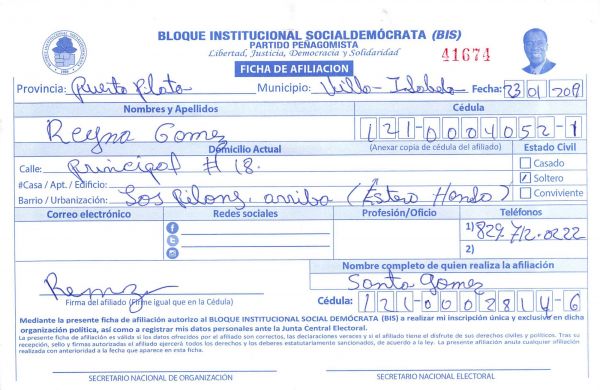 BLOQUE INSTITUCIONAL SOCIALDEMÓCRATA (BIS)
PARTIDO PEÑAGOMISTA
Libertad, Justicia, Democracia y Solidaridad
41674
FICHA DE AFILIACION
Provincia: Puerto Plata Municipio: Villa-Isabela Fecha: 23 01 209
Nombres y Apellidos Cédula
Reyna Gomez 121-0004052-1
Domicilio Actual (Anexar copia de cédula del afiliado) Estado Civil
Calle: principal # 18. Casado
#Casa / Apt. / Edificio: Soltero
Barrio / Urbanización: Los Pilons, arriba (Estero Hondo) Conviviente
Correo electrónico Redes sociales Profesión/Oficio Teléfonos
1) 829.712.0222
2)
Nombre completo de quien realiza la afiliación
Santa gomez
Firma del afiliado (Firme igual que en la Cédula)
Cédula: 121-0002814-6
Mediante la presente ficha de afiliación autorizo al BLOQUE INSTITUCIONAL SOCIAL DEMÓCRATA (BIS) a realizar mi inscripción única y exclusiva en dicha
organización política, así como a registrar mis datos personales ante la Junta Central Electoral.
La presente ficha de afiliación es válida si los datos ofrecidos por el afiliado son correctos, las declaraciones veraces y si el afiliado tiene el disfrute de sus derechos civiles y políticos. Tras su
recepción, sello y firmas autorizadas el afiliado ejercerá todos los derechos y los deberes estatutariamente sancionados, de acuerdo a la ley. La presente afiliación anula cualquier afiliación
realizada con anterioridad a la fecha que aparece en esta ficha.
SECRETARIO NACIONAL DE ORGANIZACIÓN SECRETARIO NACIONAL ELECTORAL